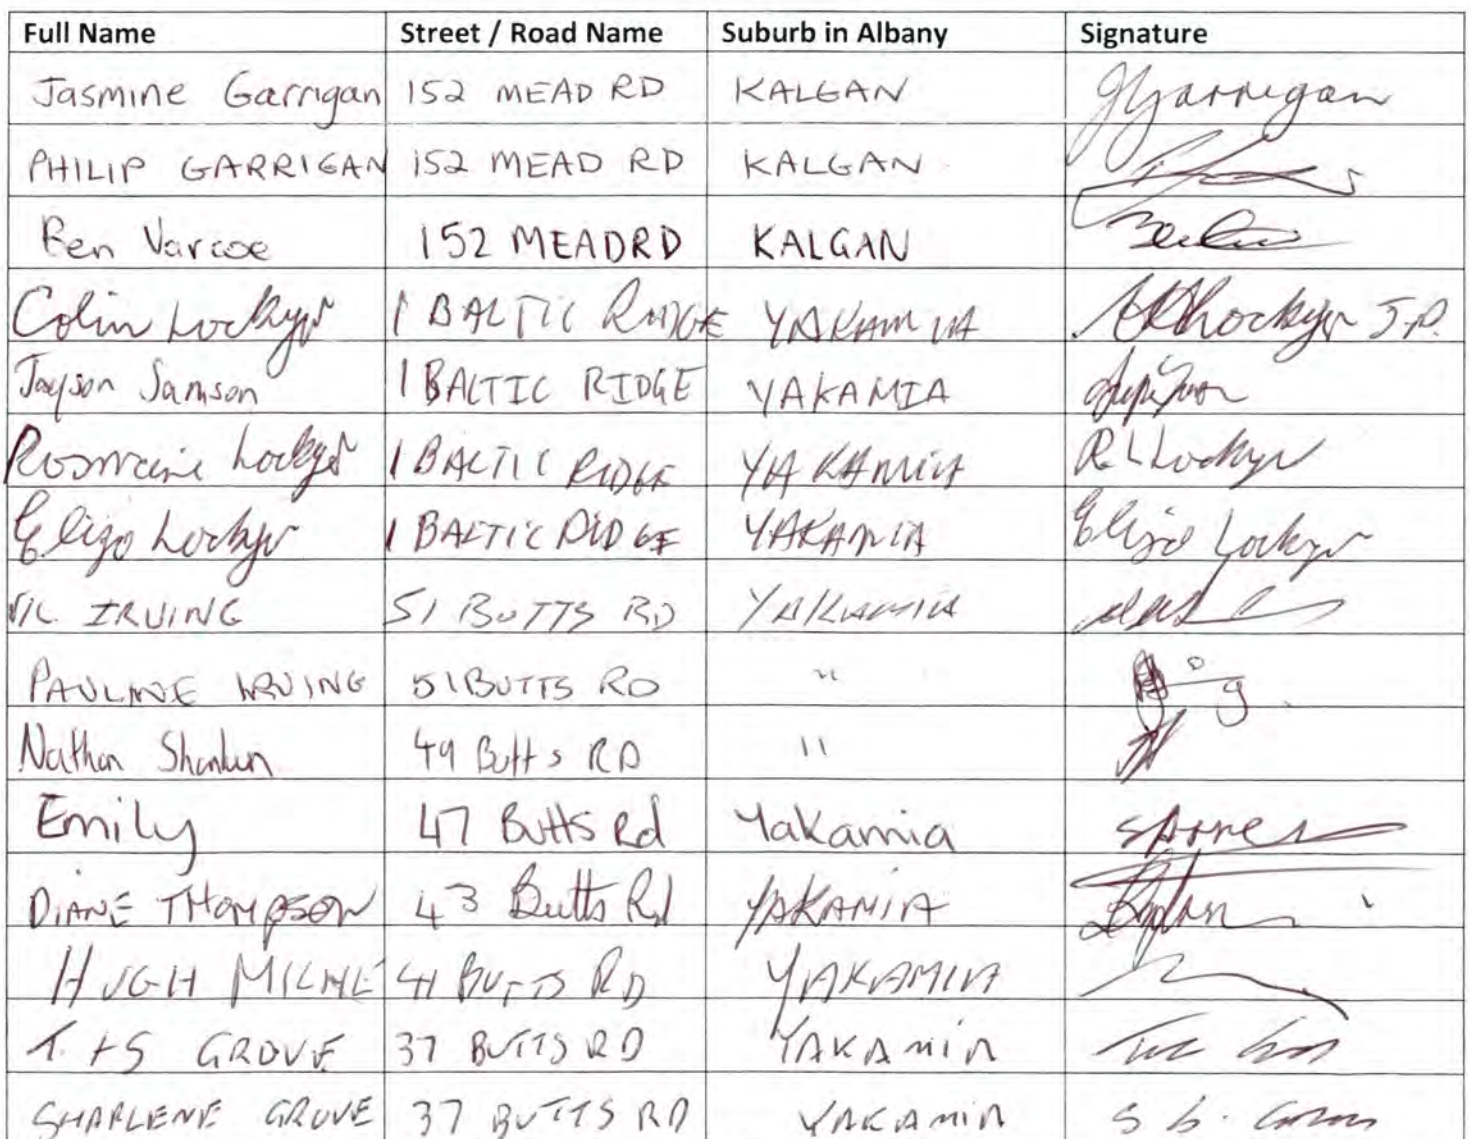 Full Name Street / Road Name Suburb in Albany Signature
Jasmine Garrigan 152 MEAD RD KALGAN JGarrigan
PHILIP GARRIGAN 152 MEAD RD KALGAN
Ben Varcoe 152 MEADRD KALGAN
Colin Lockyer 1 BALTIC RIDGE YAKAMIA Lockyer J.P.
Jayson Samson 1 BALTIC RIDGE YAKAMIA
Rosmarie Lockyer 1 BALTIC RIDGE YAKAMIA R. L Lockyer
Eliza Lockyer 1 BALTIC RIDGE YAKAMIA Eliza Lockyer
IRVING 51 BUTTS RD YAKAMIA
PAULINE IRVING 51 BUTTS RD "
Nathan 49 Butts RD "
Emily 47 Butts Rd Yakamia
DIANE THOMPSON 43 Butts Rd YAKAMIA
HUGH MILNE 41 BUTTS RD YAKAMIA
T. +S GROVE 37 BUTTS RD YAKAMIA
SHARLENE GROVE 37 BUTTS RD YAKAMIA